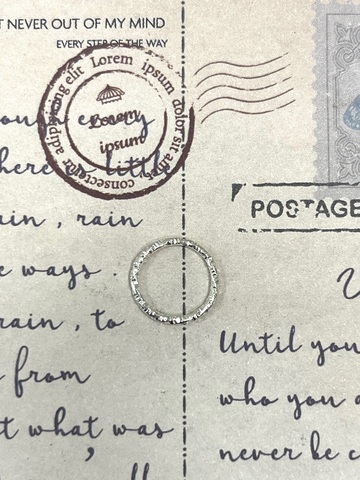 T NEVER OUT OF MY MIND
EVERY STEP OF THE WAY
Lorem ipsum dolor sit amet, consectetur adipiscing elit
Lorem
ipsum
here little
ain, rain
e ways.
rain, to
from
t what was
POSTAGE
Until you
who you a
never be c